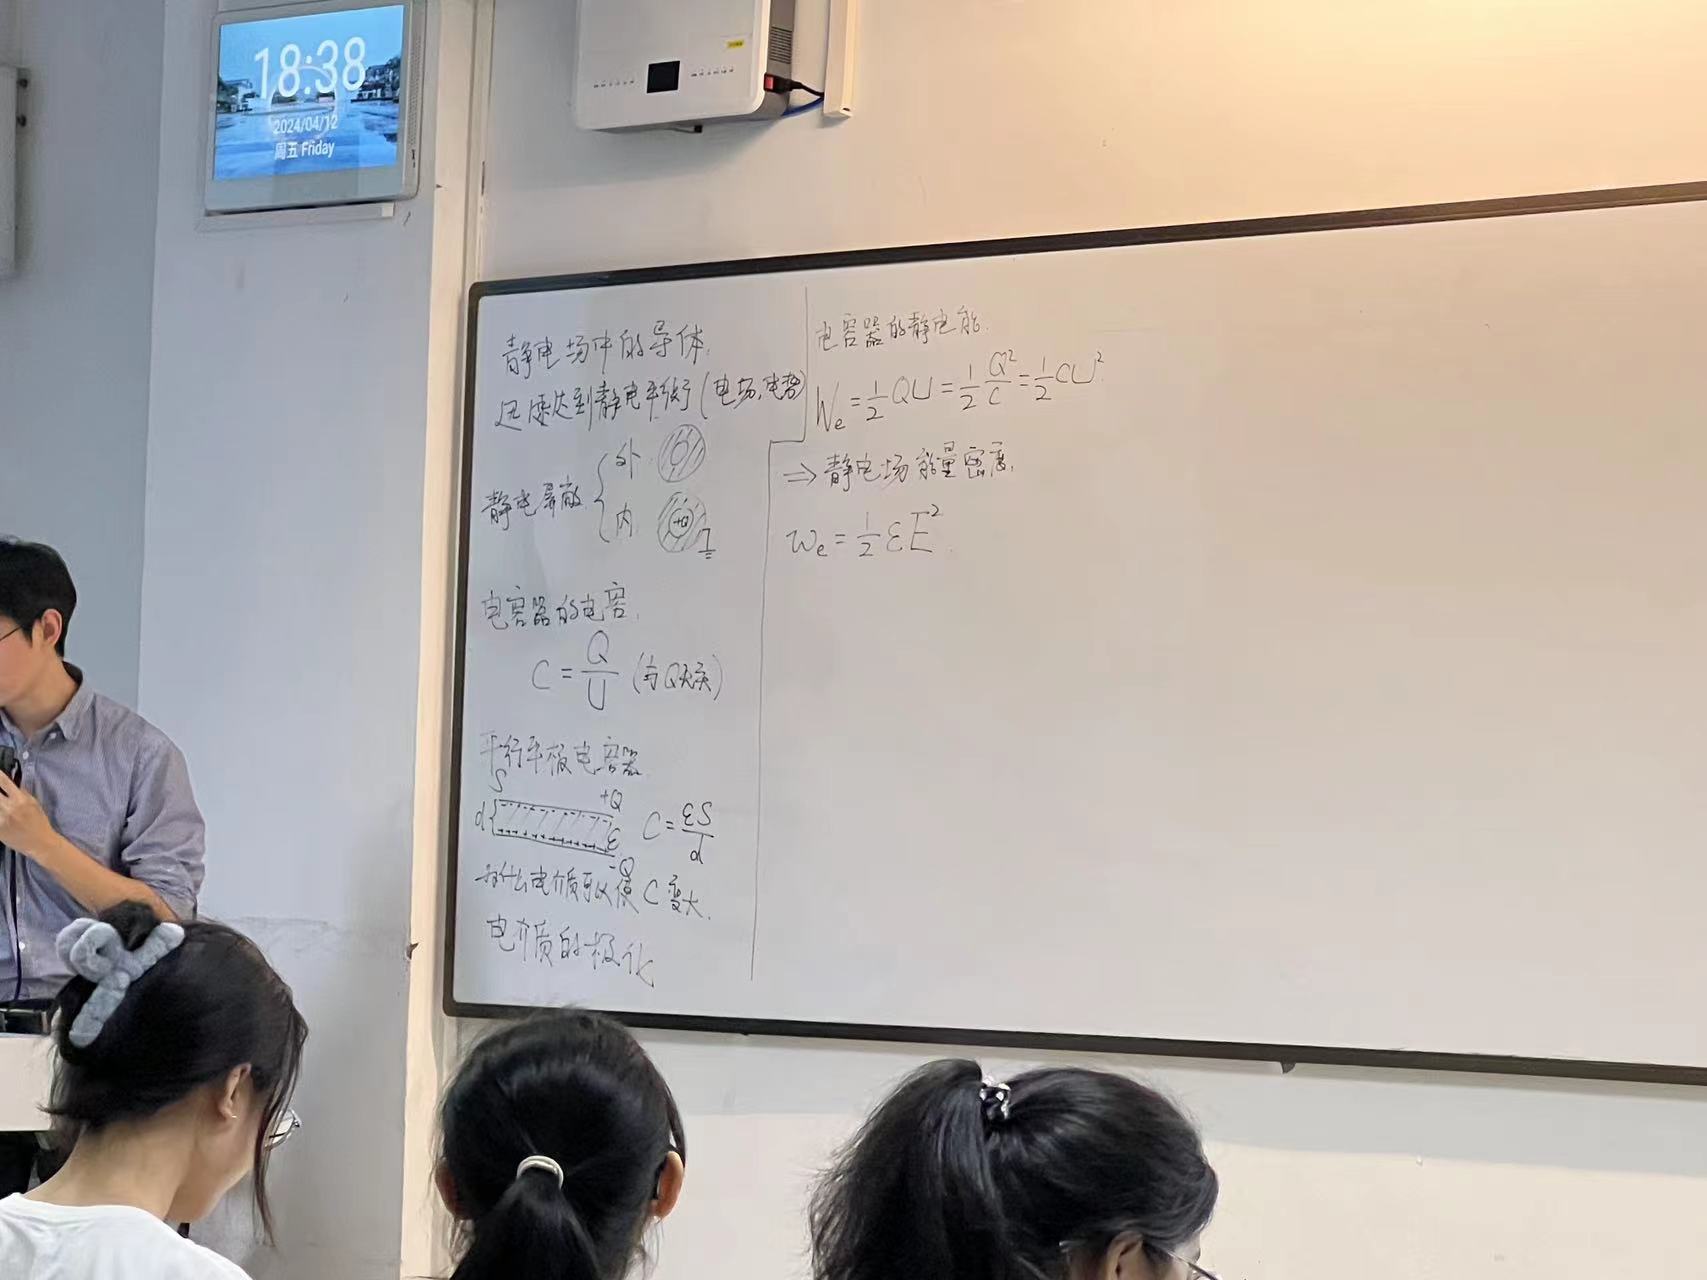 18:38
2024/04/12
周五 Friday
静电场中的导体.
迅速达到静电平衡 (电场, 电势)
静电屏蔽 { 外
内 +Q
电容器的电容.
C = Q/U (与Q无关)
平行平板电容器
S
d +Q
ε C = εS/d
-Q
为什么电介质可以使 C 变大.
电介质的极化
电容器的静电能.
We = 1/2 QU = 1/2 Q²/C = 1/2 CU².
⇒ 静电场能量密度.
we = 1/2 εE².